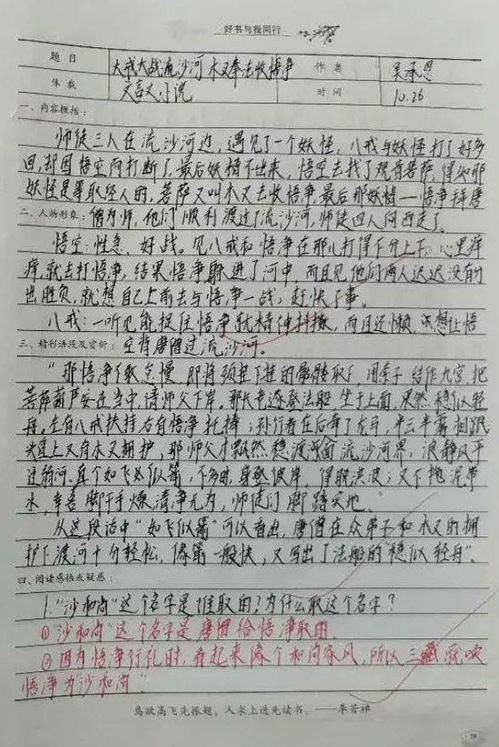 好书与我同行
题目 八戒大战流沙河 木叉奉法收悟净 作者 吴承恩
体裁 文言文小说 时间 10.26
一、内容概括：
师徒三人在流沙河边，遇见了一个妖怪，八戒与妖怪打了好多
回，却因悟空而打断了，最后妖精不出来，悟空去找了观音菩萨，得知那
妖怪是等取经人的，菩萨又叫木叉去收悟净，最后那妖精——悟净拜唐
二、人物形象：僧为师，他们顺利渡过了流沙河，师徒四人向西走了。
悟空：性急、好战。见八戒和悟净在那儿打得不分上下，心里痒
痒，就去打悟净，结果悟净躲进了河中，而且见他们两人迟迟没有分
出胜负，就想自己上前去与悟净一战，赶快了事。
八戒：一听见能捉住悟净就精神抖擞，而且还懒，不想让悟
三、精彩语段及赏析：空背唐僧过流沙河。
"那悟净不敢怠慢，即将颈项下挂的骷髅取下，用索子结作九宫，把
菩萨葫芦安在当中，请师父下岸。那长老遂登法船，坐于上面，果然稳似轻
舟。左有八戒扶持，右有悟净托捧；孙行者在后牵了龙马，半云半雾相跟；
头直上又有木叉拥护，那师父才飘然稳渡流沙河界，浪静风平
过弱河。真个如飞似箭，不多时，身登彼岸，得脱洪波；又不拖泥带
水，幸喜脚干手燥，清净无为，师徒们脚踏实地。
从这段话中"如飞似箭"可以看出，唐僧在众弟子和木叉的拥
护下渡河十分轻松，像箭一般快，又写出了法船的"稳似轻舟"。
四、阅读感悟或疑惑：
1."沙和尚"这个名字是谁取的？为什么取这个名字？
①"沙和尚"这个名字是唐僧给悟净取的。
②因为悟净行礼时，看起来像个和尚家风，所以三藏就唤
悟净为"沙和尚"
鸟欲高飞先振翅，人求上进先读书。——李苦禅